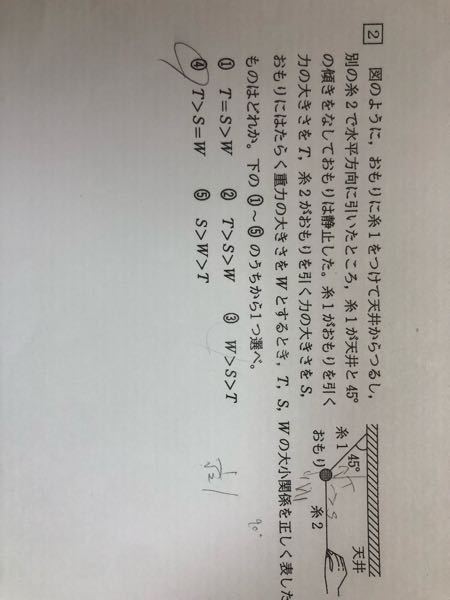 2 図のように，おもりに糸1をつけて天井からつるし，
別の糸2で水平方向に引いたところ，糸1が天井と45°
の傾きをなしておもりは静止した。糸1がおもりを引く
力の大きさをT，糸2がおもりを引く力の大きさをS，
おもりにはたらく重力の大きさをWとするとき，T，S，Wの大小関係を正しく表した
ものはどれか。下の①～⑤のうちから1つ選べ。
① T＝S＞W ② T＞S＞W ③ W＞S＞T
④ T＞S＝W ⑤ S＞W＞T
天井
45°
糸1
おもり
糸2
T > S
W
√2
90°